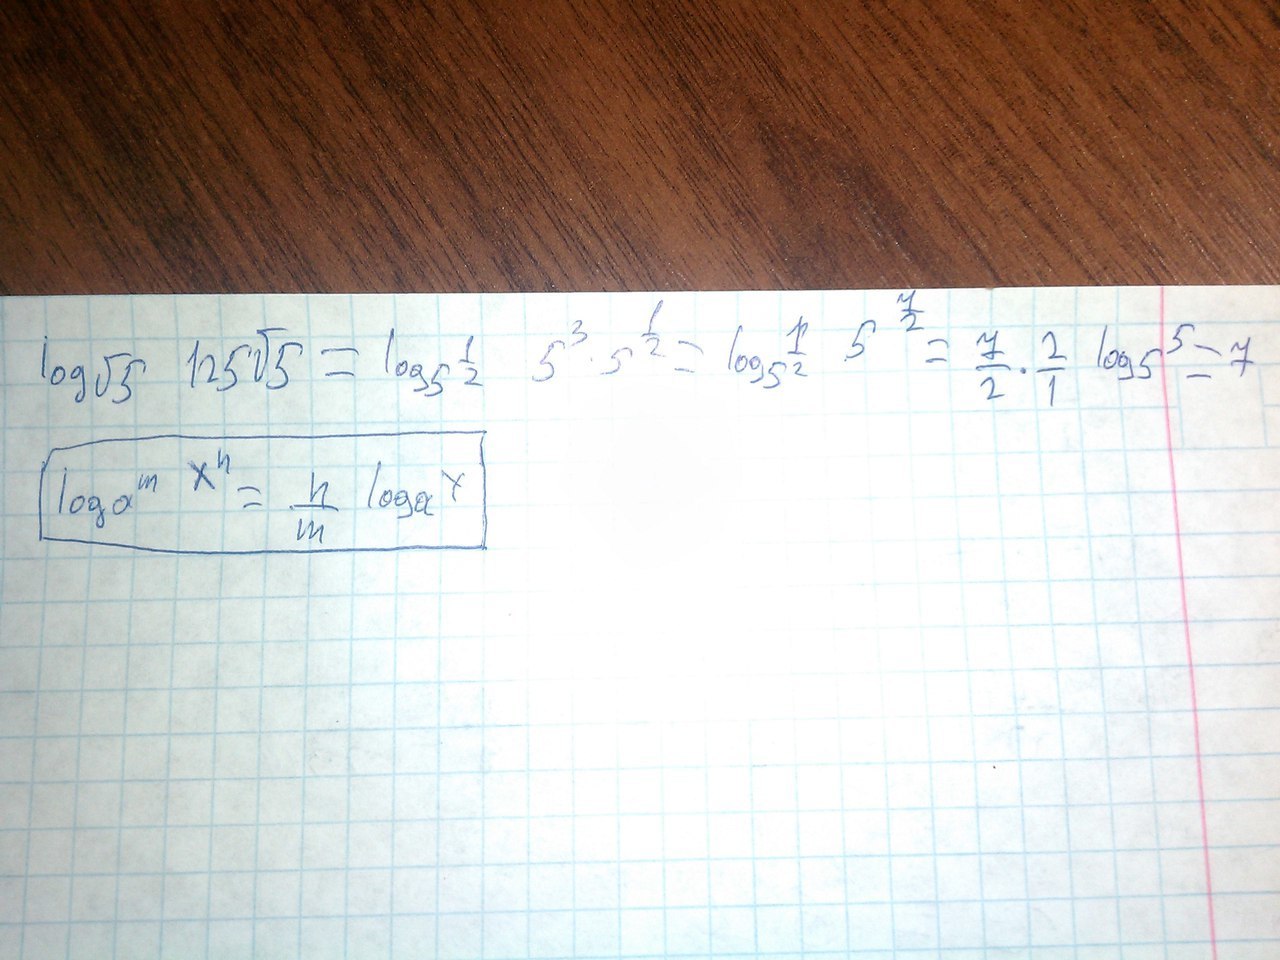 log√5 125√5 = log5^(1/2) 5^3 · 5^(1/2) = log5^(1/2) 5^(7/2) = 7/2 · 2/1 log5 5 = 7
loga^m x^n = n/m loga x